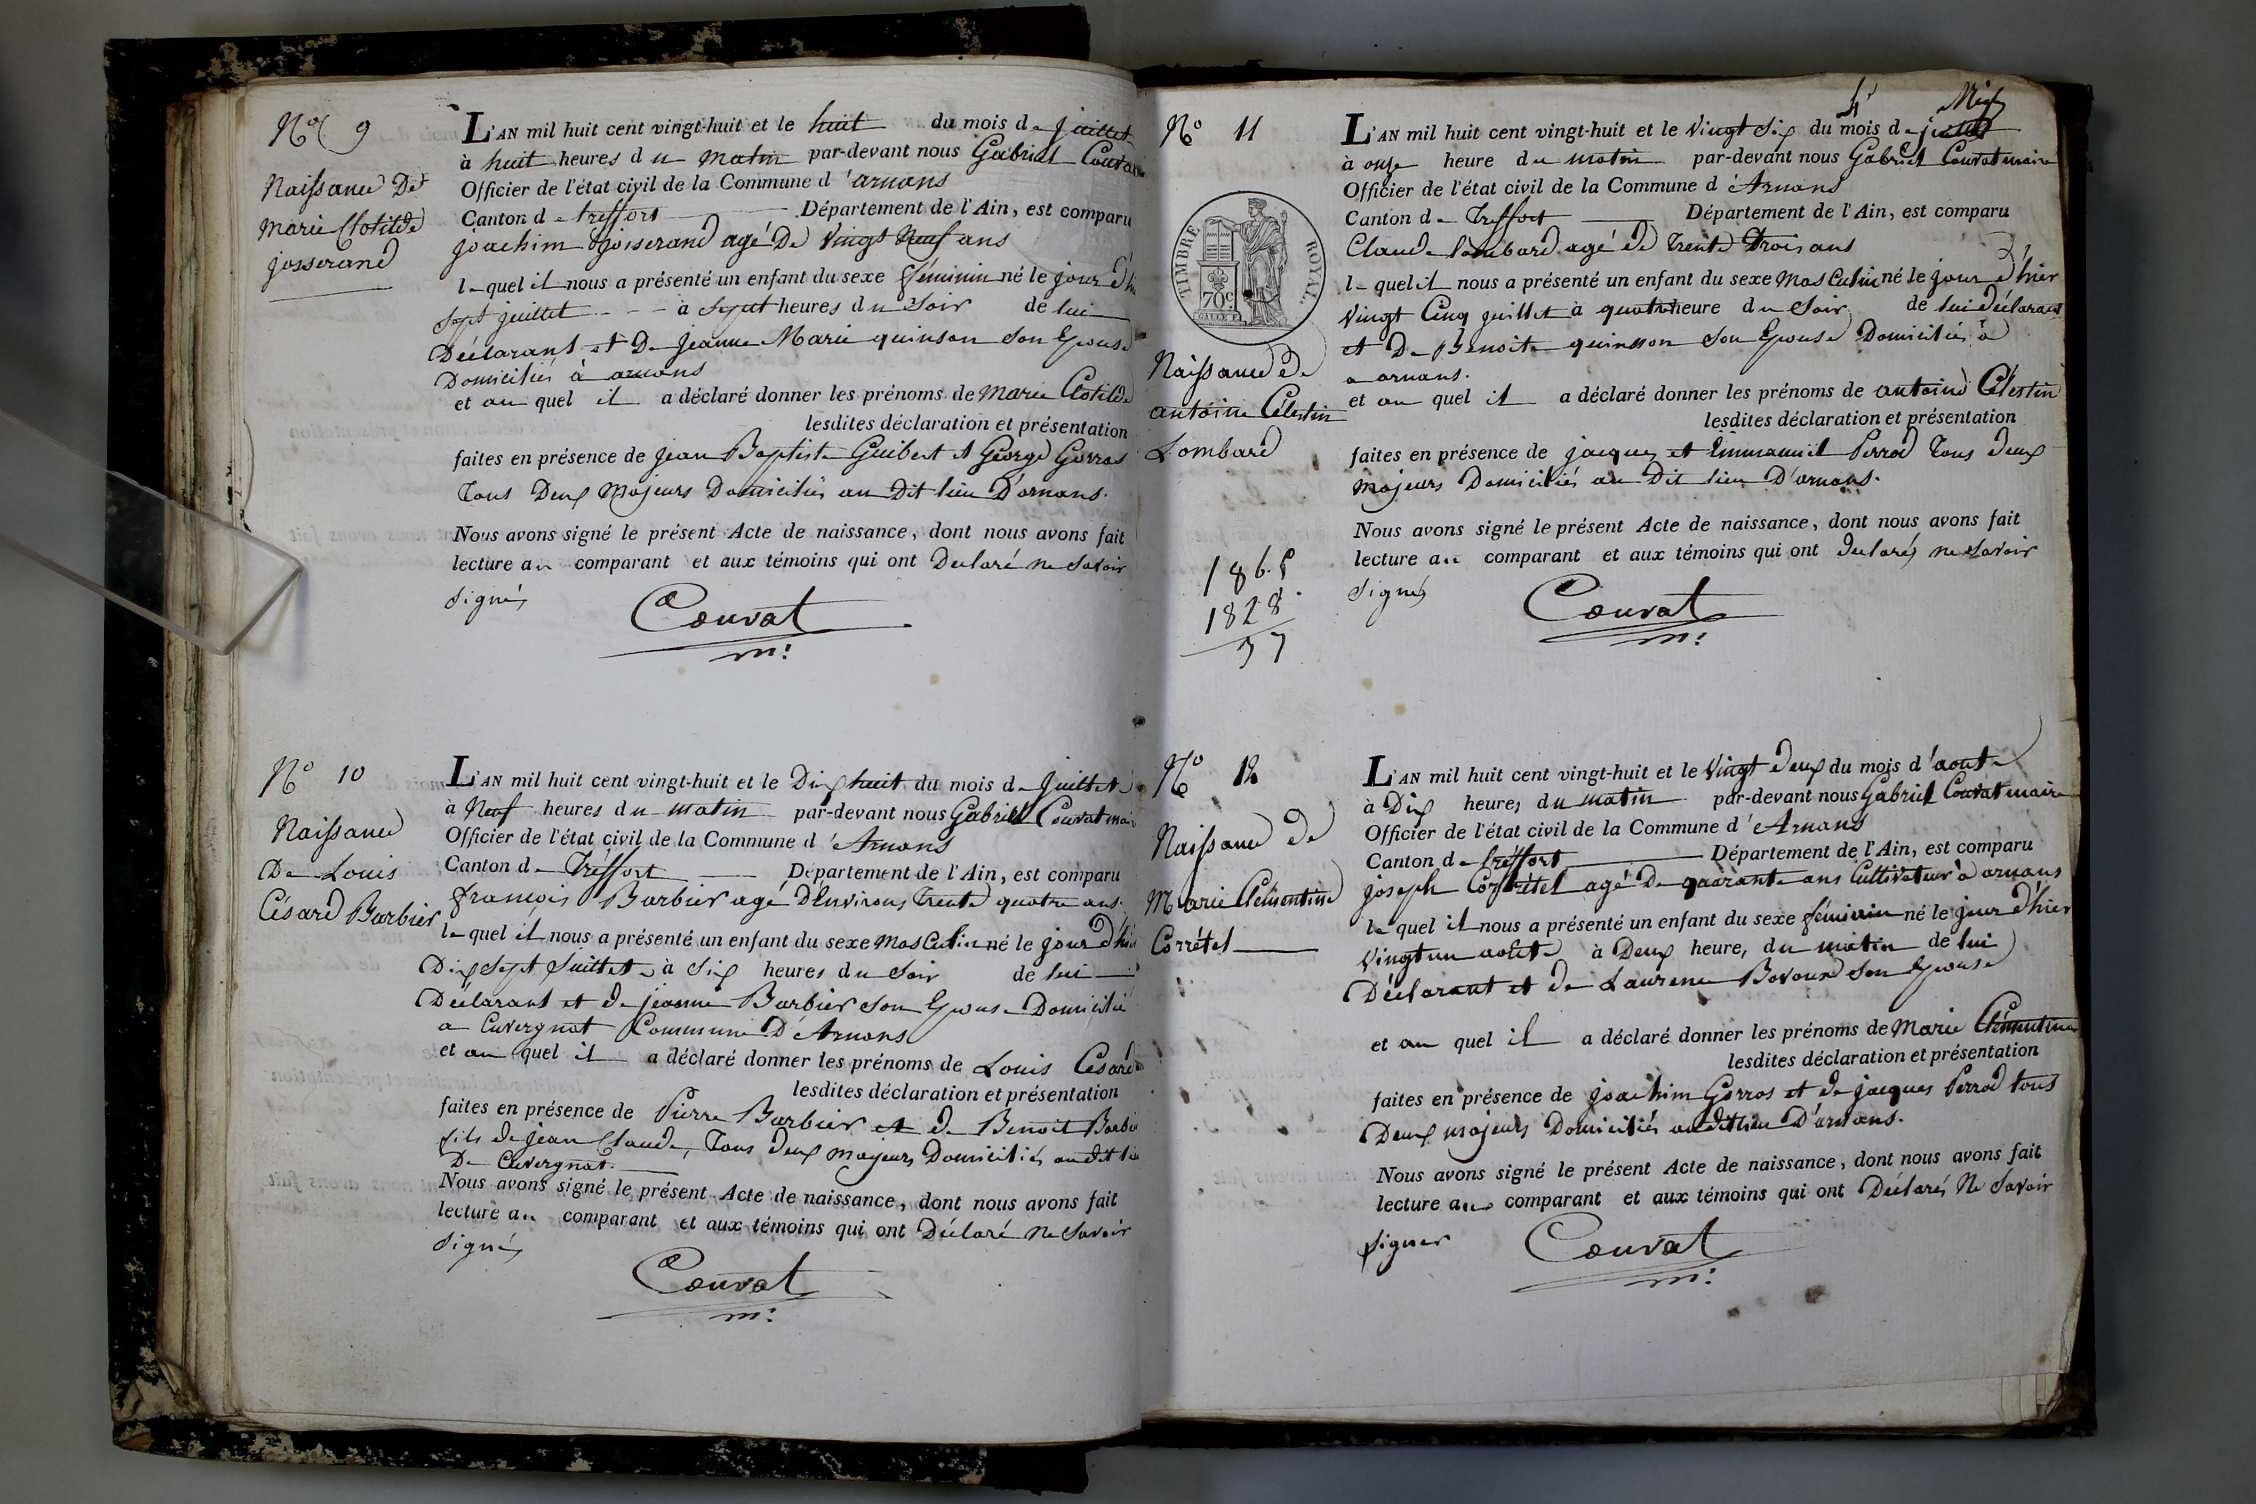 N° 9
Naissance De
Marie Clotilde
josserand
L'AN mil huit cent vingt-huit et le huit du mois de juillet
à huit heures du matin par-devant nous Gabriel Couvat
Officier de l'état civil de la Commune d'arnans
Canton de treffort Département de l'Ain, est comparu
joachim josserand agé De vingt Neuf ans
lequel il nous a présenté un enfant du sexe féminin né le jour d'hi
sept juillet à sept heures du soir de lui
Déclarant et De jeanne Marie quinson son Epouse
Domiciliés à arnans
et au quel il a déclaré donner les prénoms de Marie Clotilde
lesdites déclaration et présentation
faites en présence de jean Baptiste Guibert et George Gorras
Tous Deux Majeurs Domiciliés au Dit lieu D'arnans.
Nous avons signé le présent Acte de naissance, dont nous avons fait
lecture au comparant et aux témoins qui ont Declaré ne Savoir
signés
Couvat
m:
N° 10
Naissance
De Louis
Césard Barbier
L'AN mil huit cent vingt-huit et le Dix huit du mois de juillet
à Neuf heures du matin par-devant nous Gabriel Couvat mair
Officier de l'état civil de la Commune d'Arnans
Canton de Tréffort Département de l'Ain, est comparu
françois Barbier agé D'Environs trente quatre ans.
lequel il nous a présenté un enfant du sexe Masculin né le jour d'hier
Dix sept juillet à six heures du soir de lui
Déclarant et de jeanne Barbier son Epouse Domicilié
a Cuvergnat Commune D'Arnans
et au quel il a déclaré donner les prénoms de Louis Césard
lesdites déclaration et présentation
faites en présence de Pierre Barbier et de Benoit Barbier
fils de jean Claude, Tous deux majeurs Domiciliés au dit lieu
De Cuvergnat.
Nous avons signé le présent Acte de naissance, dont nous avons fait
lecture au comparant et aux témoins qui ont Déclaré Ne Savoir
signés
Couvat
m:
N° 11
TIMBRE ROYAL.
70c
Naissance de
antoine Célestin
Lombard
1865
1828
37
L'AN mil huit cent vingt-huit et le vingt six du mois de juillet
à onze heure du matin par-devant nous Gabriel Couvat maire
Officier de l'état civil de la Commune d'Arnans
Canton de Treffort Département de l'Ain, est comparu
Claude lombard agé de trente trois ans
lequel il nous a présenté un enfant du sexe Masculin né le jour d'hier
vingt Cinq juillet à quatre heure du soir de lui déclarant
et De Benoite quinson son Epouse Domiciliés à
a arnans.
et au quel il a déclaré donner les prénoms de antoine Célestin
lesdites déclaration et présentation
faites en présence de jacques et Emmanuel Perrod tous deux
Majeurs Domiciliés au Dit lieu D'arnans.
Nous avons signé le présent Acte de naissance, dont nous avons fait
lecture au comparant et aux témoins qui ont declarés ne savoir
signés
Couvat
m:
N° 12
Naissance de
Marie Clémentine
Corrétel
L'AN mil huit cent vingt-huit et le vingt deux du mois d'aout
à Dix heures du matin par-devant nous Gabriel Couvat maire
Officier de l'état civil de la Commune d'Arnans
Canton de tréffort Département de l'Ain, est comparu
joseph Corrétel agé De quarante ans Cultivateur à arnans
lequel il nous a présenté un enfant du sexe féminin né le jour d'hier
vingt un aout à Deux heure, du matin de lui
Déclarant et de Laurence Bovoux son Epouse
et au quel il a déclaré donner les prénoms de Marie Clémentine
lesdites déclaration et présentation
faites en présence de joachim Gorras et de jacques Perrod tous
Deux majeurs Domiciliés audit lieu D'arnans.
Nous avons signé le présent Acte de naissance, dont nous avons fait
lecture au comparant et aux témoins qui ont Déclarés Ne Savoir
signer
Couvat
m: